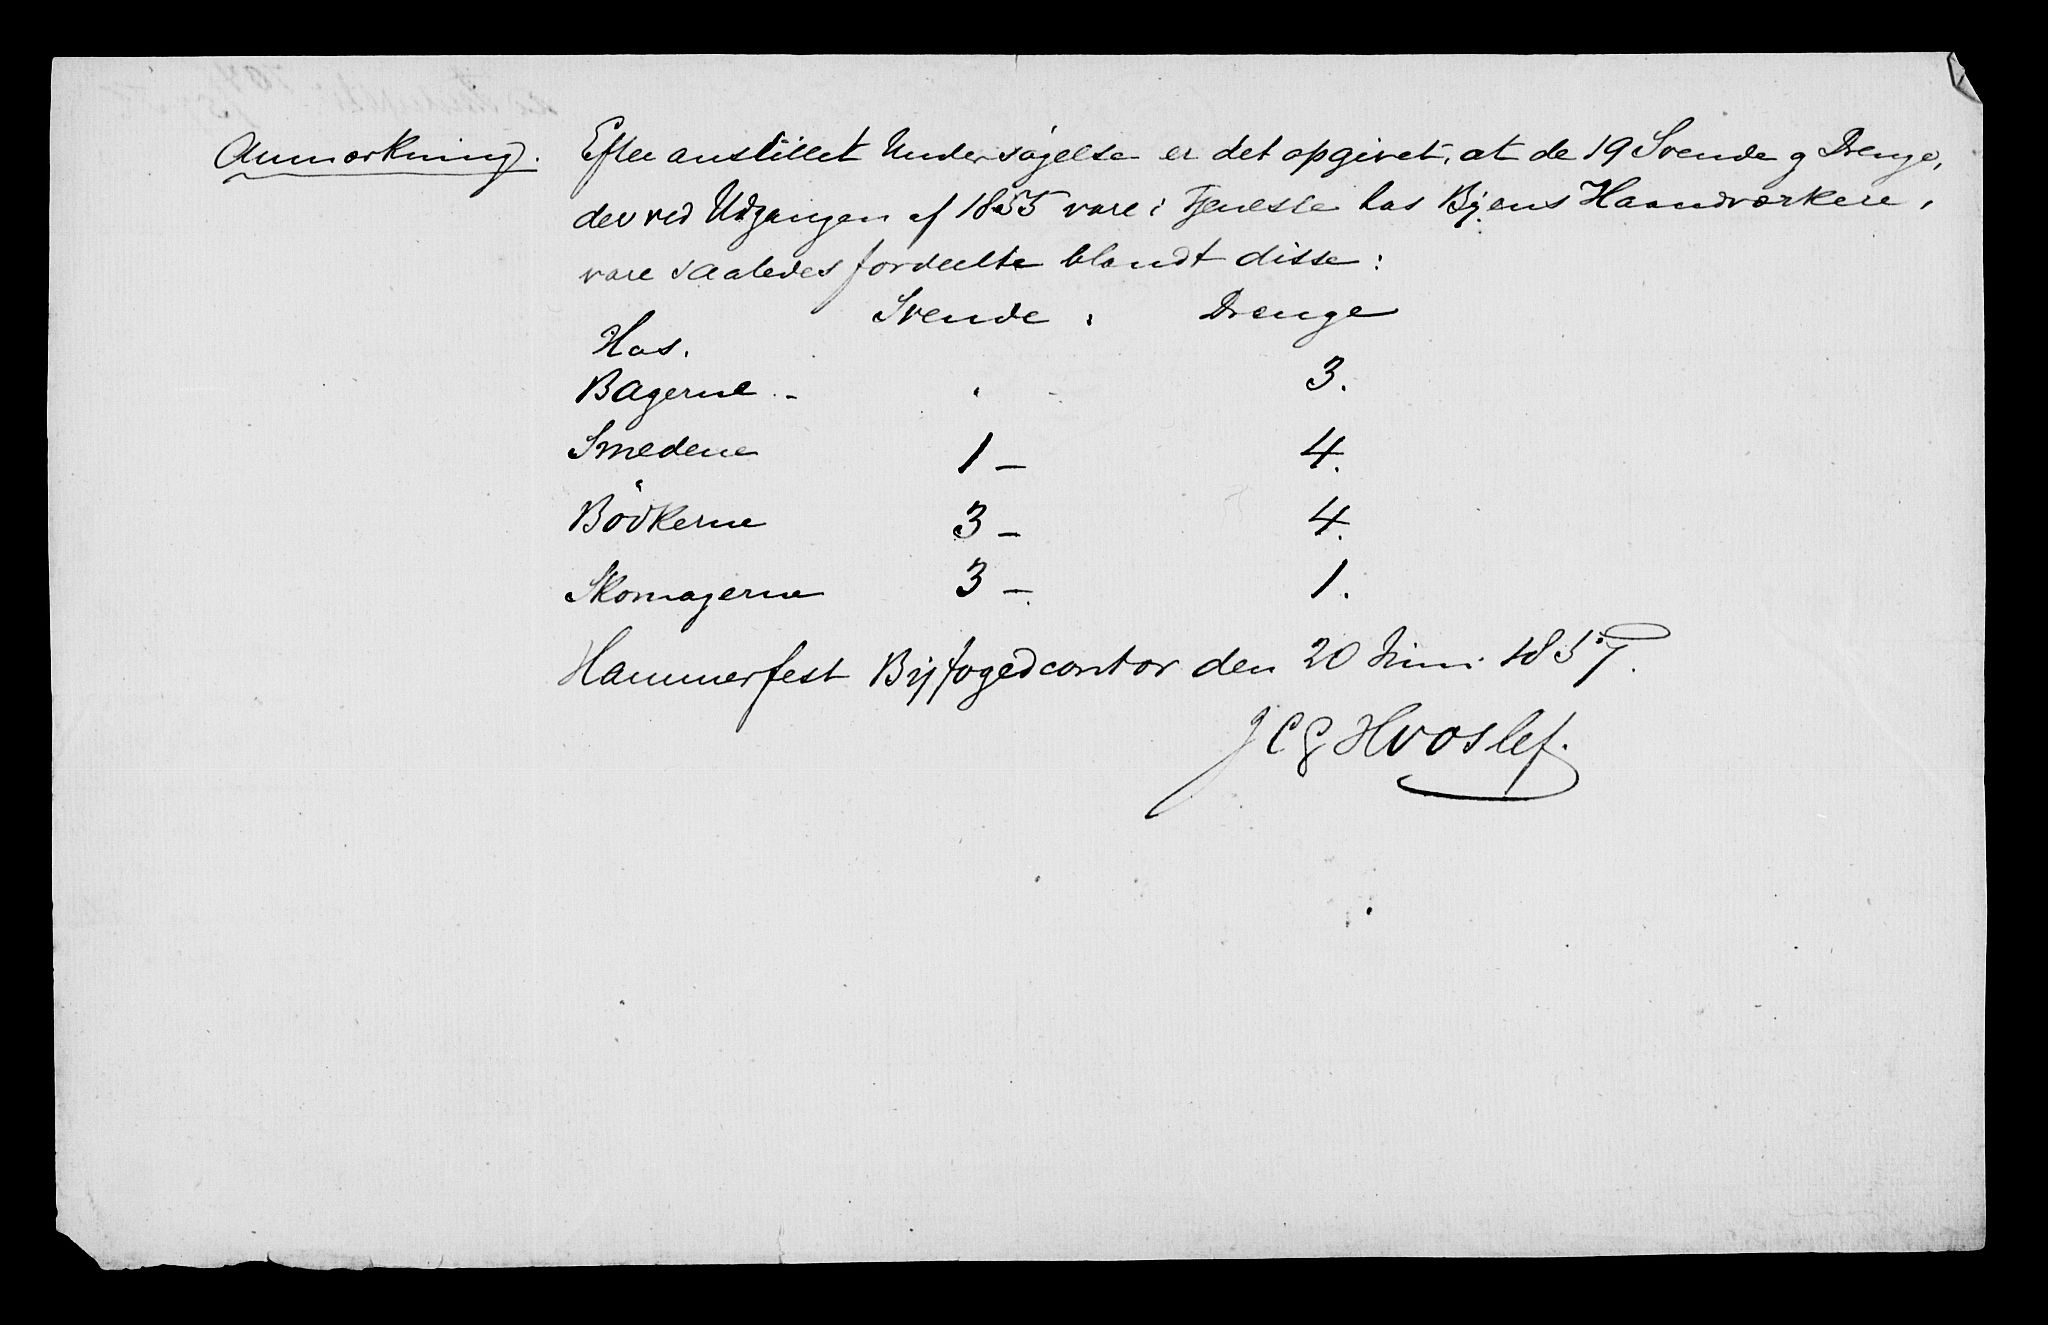 Anmærkning. Efter anstillet Undersøgelse er det opgivet, at de 19 Svende og Drenge,
der ved Udgangen af 1855 vare i Tjeneste hos Byens Haandværkere,
vare saaledes fordeelte blandt disse:
Svende. Drenge
Hos.
Bagerne - . 3.
Smedene 1 - 4.
Bödkerne 3 - 4.
Skomagerne 3 - 1.
Hammerfest Byfogedcontor den 20 Juni 1857.
J C G Hvoslef.